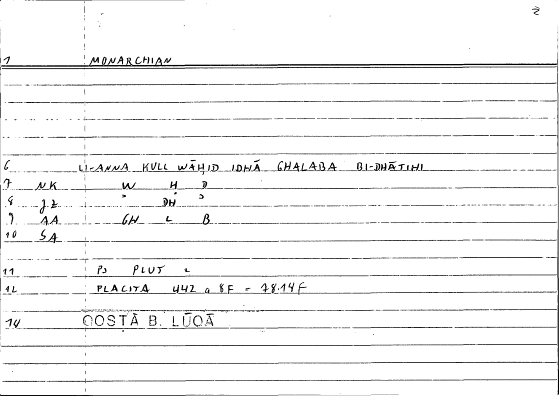 2
1 MONARCHIAN
6 LI-ANNA KULL WĀḤID IDHĀ GHALABA BI-DHĀTIHI
7 NK W Ḥ D
8 J.Z ʾ DH ʾ
9 AA GH L B
10 SA
11 PS PLUT
12 PLACITA 442 a 8F = 78.14F
14 QOSṬĀ B. LŪQĀ